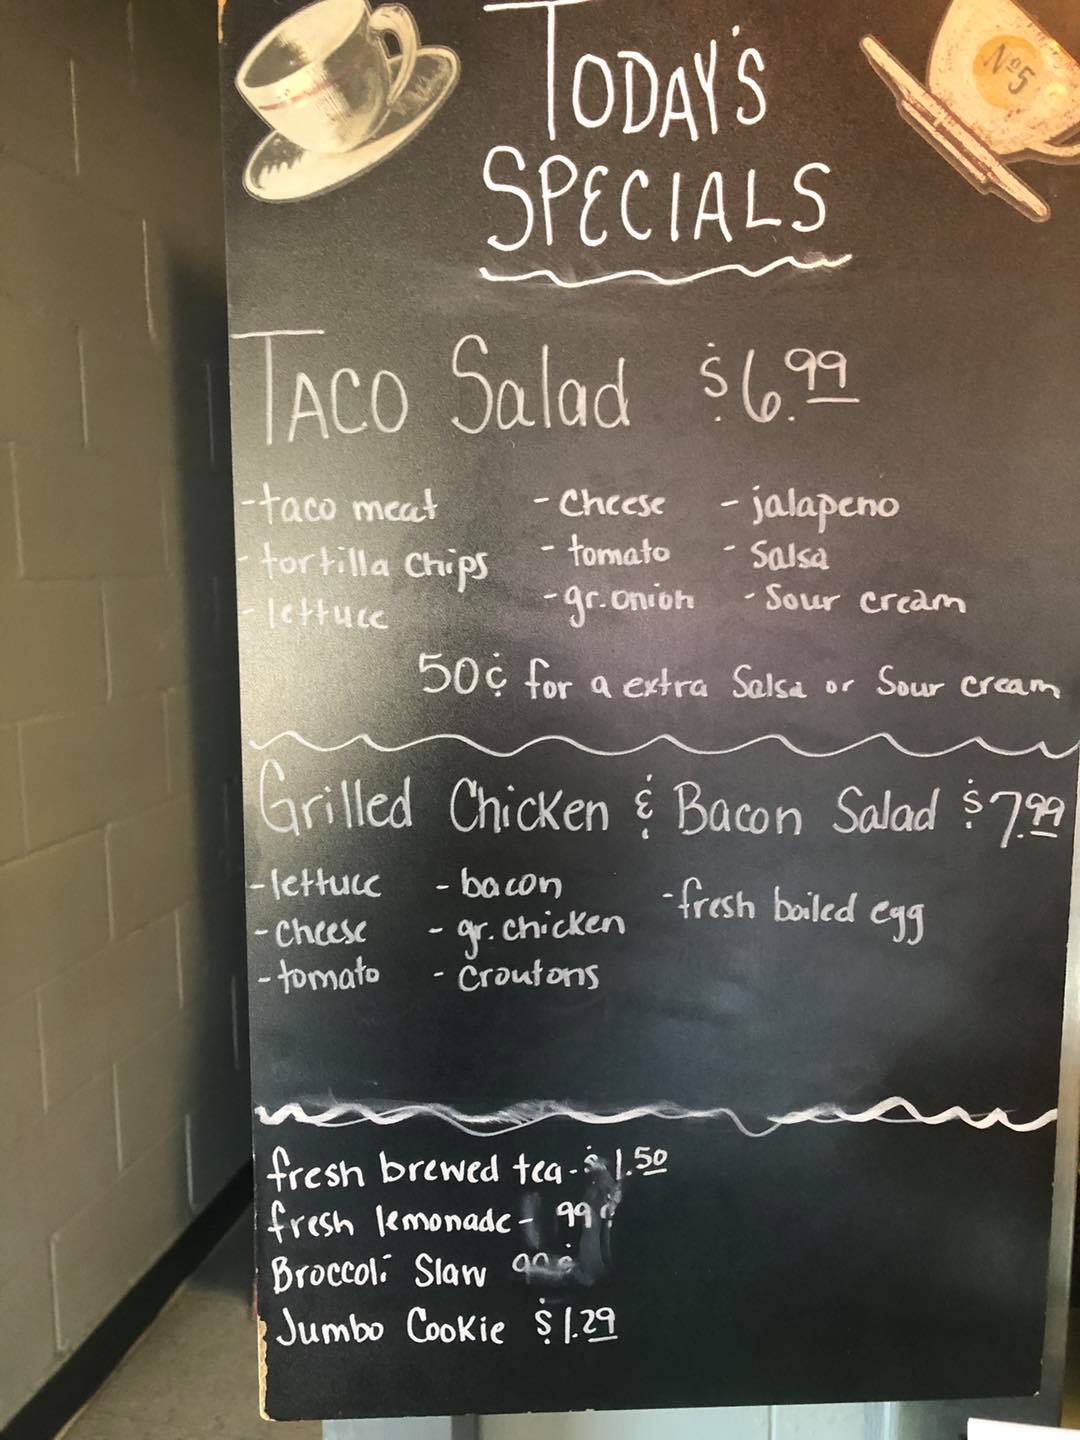 TODAY'S
SPECIALS
Nº5
TACO Salad $6.99
-taco meat - Cheese - jalapeno
-tortilla chips - tomato - Salsa
-lettuce -gr.onion - Sour cream
50¢ for a extra Salsa or Sour cream
Grilled Chicken & Bacon Salad $7.99
-lettuce - bacon -fresh boiled egg
-cheese - gr. chicken
-tomato - Croutons
fresh brewed tea-$1.50
fresh lemonade- 99¢
Broccoli Slaw
Jumbo Cookie $1.29